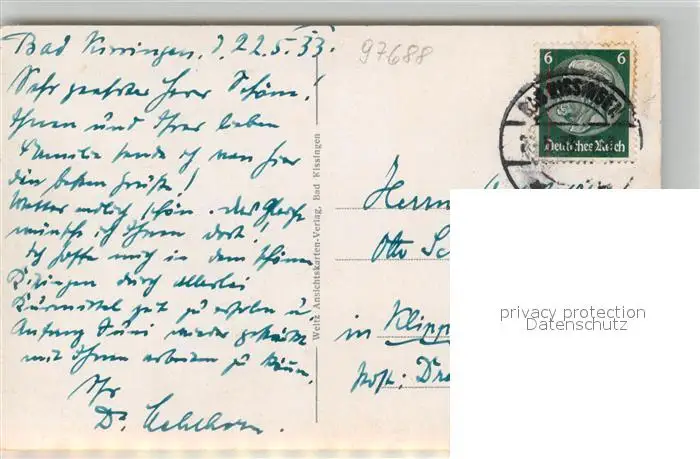 Bad Kissingen, d. 22.5.33.
97688
Sehr geehrter Herr Schöne!
Ihnen und Ihrer lieben
Familie sende ich von hier
die besten Grüße!
Wetter endlich schön. Das Gleiche
wünsche ich Ihnen dort!
Ich hoffe mich in dem schönen
Kissingen durch allerlei
Kurmittel gut zu erholen u.
Anfang Juni wieder gestärkt
mit Ihnen arbeiten zu können.
Ihr
Dr.
Weitz Ansichtskarten-Verlag, Bad Kissingen
6 6
Deutsches Reich
BAD KISSINGEN
Herrn
Otto Sc
in Klipp
Post: Dre
privacy protection
Datenschutz